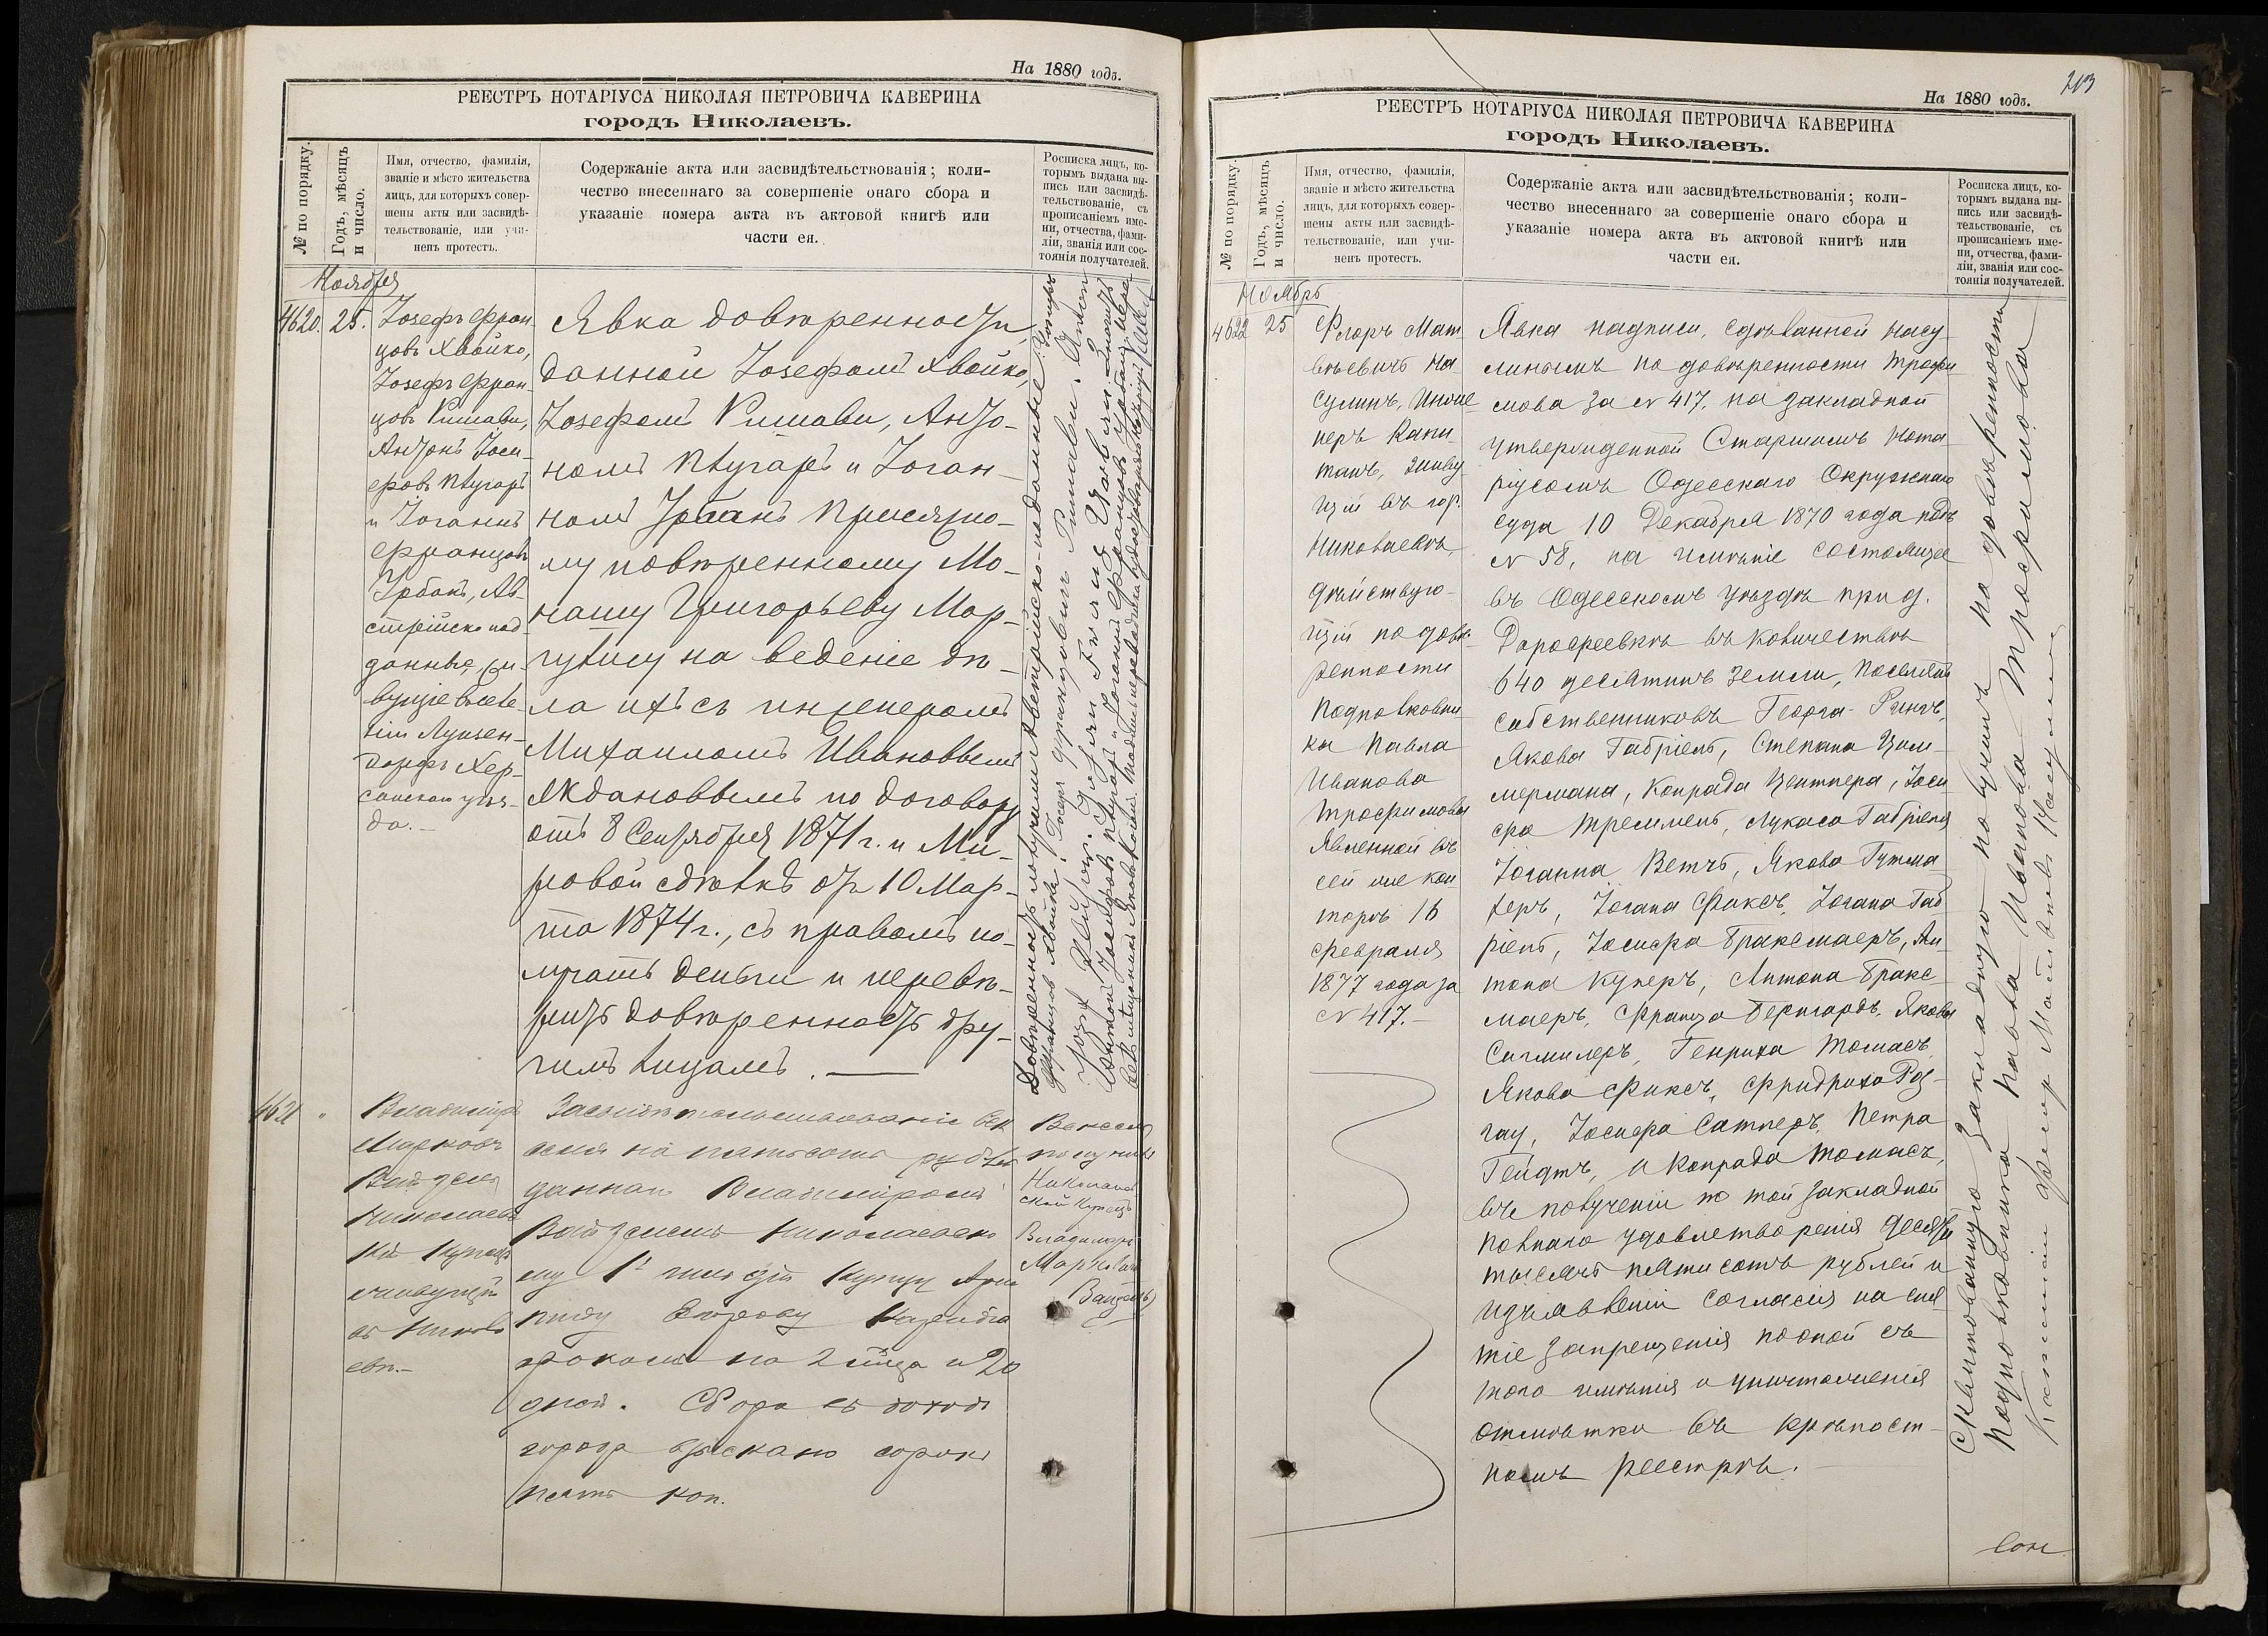 На 1880 годъ.
РЕЕСТРЪ НОТАРІУСА НИКОЛАЯ ПЕТРОВИЧА КАВЕРИНА
городъ Николаевъ.
№ по порядку.
Годъ, мѣсяцъ
и число.
Имя, отчество, фамилія,
званіе и мѣсто жительства
лицъ, для которыхъ совер-
шены акты или засвидѣ-
тельствованіе, или учи-
ненъ протестъ.
Содержаніе акта или засвидѣтельствованія; коли-
чество внесеннаго за совершеніе онаго сбора и
указаніе номера акта въ актовой книгѣ или
части ея.
Росписка лицъ, ко-
торымъ выдана вы-
пись или засвидѣ-
тельствованіе, съ
прописаніемъ име-
ни, отчества, фами-
ліи, званія или сос-
тоянія получателей.
Ноября
4620.
25.
Іозефъ Фран-
цовъ Хвойко,
Іозефъ Фран-
цовъ Ришави,
Антонъ Іоси-
фовъ Плугаръ
и Іоганнъ
Францовъ
Урбанъ, Ав-
стрійско под-
данные, жи-
вущіе въ коло-
ніи Лунзен-
дорфъ Хер-
сонскаго уѣз-
да.
Явка довѣренности,
данной Іозефомъ Хвойко,
Іозефомъ Ришави, Анто-
номъ Плугаръ и Іоган-
номъ Урбанъ Присяжно-
му повѣренному Мо-
нашу Григорьеву Мор-
гулису на веденіе дѣ-
ла ихъ съ инженеромъ
Михаиломъ Ивановымъ
Ждановымъ по договору
отъ 8 Сентября 1871 г. и Ми-
ровой сдѣлкѣ отъ 10 Мар-
та 1874 г., съ правомъ по-
лучать деньги и перевѣ-
рить довѣренность дру-
гимъ лицамъ.
Довѣренность получили Австрійско-подданные
4621
"
Владиміръ
Марковъ
Вайнзенъ
Николаевс
кій Купецъ
живущій
въ Никола
евѣ.
Засвидѣтельствованіе век
селя на пятьсотъ рублей
даннаго Владиміромъ
Николаевско
му 1й гильдіи Купцу
срокомъ на 2 м-ца и 20
дней. Сбора въ доходъ
города взыскано сорокъ
пять коп.
Вексель
получилъ
Николаев
скій Купецъ
Владиміръ
Марковъ
213
На 1880 годъ.
РЕЕСТРЪ НОТАРІУСА НИКОЛАЯ ПЕТРОВИЧА КАВЕРИНА
городъ Николаевъ.
№ по порядку.
Годъ, мѣсяцъ
и число.
Имя, отчество, фамилія,
званіе и мѣсто жительства
лицъ, для которыхъ совер-
шены акты или засвидѣ-
тельствованіе, или учи-
ненъ протестъ.
Содержаніе акта или засвидѣтельствованія; коли-
чество внесеннаго за совершеніе онаго сбора и
указаніе номера акта въ актовой книгѣ или
части ея.
Росписка лицъ, ко-
торымъ выдана вы-
пись или засвидѣ-
тельствованіе, съ
прописаніемъ име-
ни, отчества, фами-
ліи, званія или сос-
тоянія получателей.
Ноябрь
4622
25
Ѳедоръ Мат-
вѣевичъ На-
сулинъ, Инже
неръ Капи-
танъ, живу
щій въ гор.
Николаевѣ,
дѣйствую-
щій по довѣ-
ренности
Подполковни-
ка Павла
Иванова
Трофимова
явленной въ
сей же кон-
торѣ 16
февраля
1877 года за
№ 417.
Явка надписи, сдѣланной Насу
линымъ по довѣренности Трофи
мова за № 417, на закладной
утвержденной Старшимъ Нота
ріусомъ Одесскаго Окружнаго
суда 10 Декабря 1870 года подъ
№ 58, на имѣніе состоящее
въ Одесскомъ уѣздѣ при д.
Дорофеевкѣ въ количествѣ
640 десятинъ земли, поселянъ
собственниковъ Георга Рингъ,
Якова Габріель, Степана Цим-
мермана, Конрада Центнера, Іоси
фа Треммель, Лукаса Габріеля
Іоганна Ветчъ, Якова Гутма
херъ, Іогана Фиксъ, Іогана Габ
ріель, Іосифа Бракемаеръ, Ан-
тона Куперъ, Антона Браке
маеръ, Франца Бернгардъ, Якова
Сигмилеръ, Генриха Томасъ,
Якова Фиксъ, Фридриха Роз-
гау, Іосифа Сатлеръ, Петра
Гейдтъ, и Конрада Томасъ,
въ полученіи по той закладной
полнаго удовлетворенія десять
тысячъ пятисотъ рублей и
изъявленіи согласія на сня
тіе запрещенія по оной съ
того имѣнія и уничтоженія
отмѣтки въ крѣпост-
номъ реестрѣ.
Сквитованную закладную получилъ по довѣренности
Подполковника Павла Иванова Трофимова
Капитанъ Ѳедоръ Матвѣевъ Насулинъ